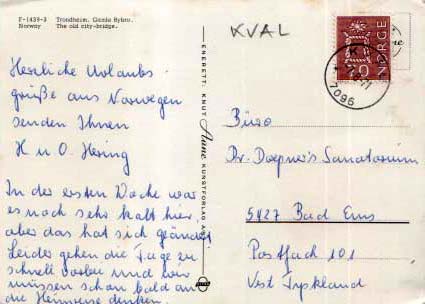 F-1439-3 Trondheim. Gamle Bybro.
Norway The old city-bridge.
Herzliche Urlaubs-
grüße aus Norwegen
senden Ihnen
H u O. Hering
In der ersten Woche war
es noch sehr kalt hier,
aber das hat sich geändert
Leider gehen die Tage zu
schnell vorbei und wir
müssen schon bald an
die Heimreise denken.
ENERETT: KNUT Aune KUNSTFORLAG
KVAL
NORGE
7096
Büro
Dr. Doepner's Sanatorium
5427 Bad Ems
Postfach 101
Vest Tyskland